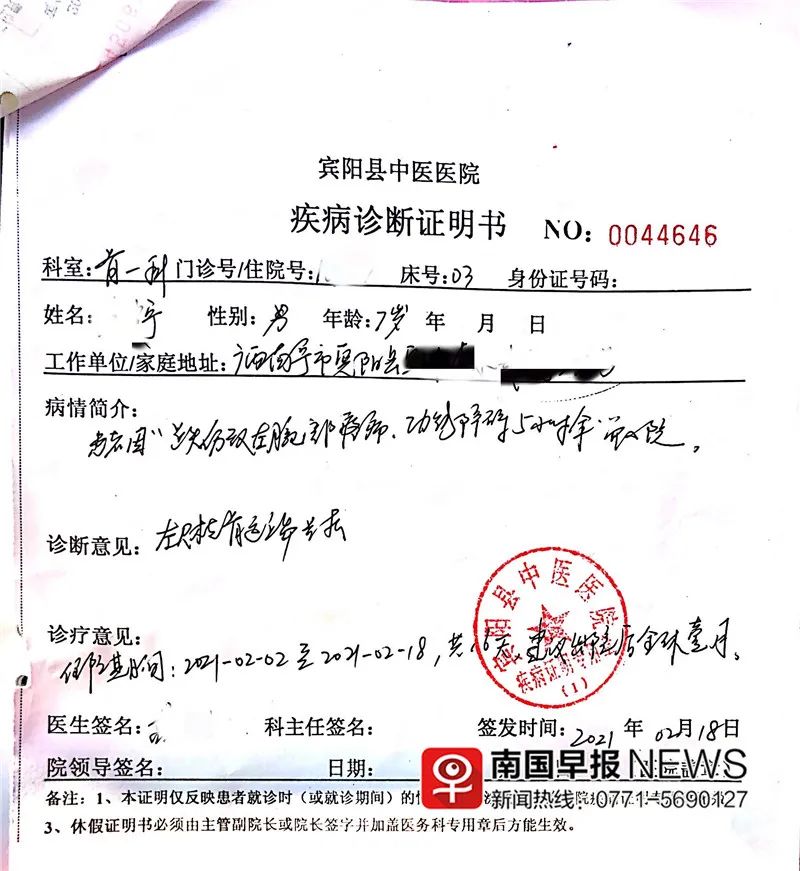 宾阳县中医医院
疾病诊断证明书 NO: 0044646
科室:骨一科 门诊号/住院号: 床号:03 身份证号码:
姓名: 宇 性别:男 年龄:7岁 年 月 日
工作单位/家庭地址:广西南宁市宾阳县
病情简介:
患者因"跌伤致左腕部疼痛、功能障碍5小时余"入院。
诊断意见: 左尺桡骨远端骨折
诊疗意见:
住院期间:2021-02-02至2021-02-18,共16天 建议出院后全休壹月。
宾阳县中医医院
疾病证明专用章
(1)
医生签名: 科主任签名: 签发时间:2021年02月18日
院领导签名: 日期:
备注:1、本证明仅反映患者就诊时(或就诊期间)的
3、休假证明书必须由主管副院长或院长签字并加盖医务科专用章后方能生效。
南国早报NEWS
新闻热线:0771-5690127